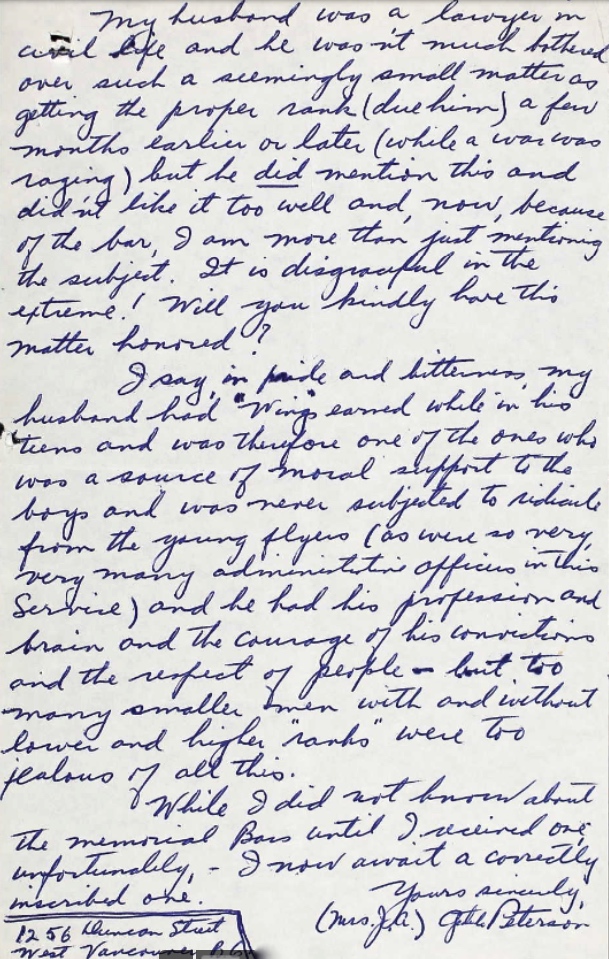 My husband was a lawyer in
civil life and he wasn't much bothered
over such a seemingly small matter as
getting the proper rank (due him) a few
months earlier or later (while a war was
raging) but he did mention this and
did'nt like it too well and, now, because
of the bar, I am more than just mentioning
the subject. It is disgraceful in the
extreme! Will you kindly have this
matter honored?
I say, in pride and bitterness, my
husband had "Wings" earned while in his
teens and was therefore one of the ones who
was a source of moral support to the
boys and was never subjected to ridicule
from the young flyers (as were so very,
very many administrative officers in this
Service) and he had his profession and
brain and the courage of his convictions
and the respect of people - but too
many smaller men with and without
lower and higher "ranks" were too
jealous of all this.
While I did not know about
the memorial Bars until I received one,
unfortunately, - I now await a correctly
inscribed one.
Yours sincerely,
(Mrs. J.A.) Peterson
1256 Duncan Street
West Vancouver B.C.